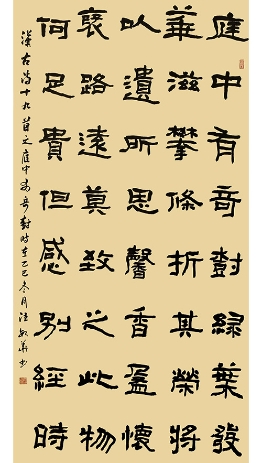 庭中有奇樹綠葉發
華滋攀條折其榮將
以遺所思馨香盈懷
褎路遠莫致之此物
何足貴但感別經時
漢古詩十九首之庭中有奇樹時在乙巳冬月汪書